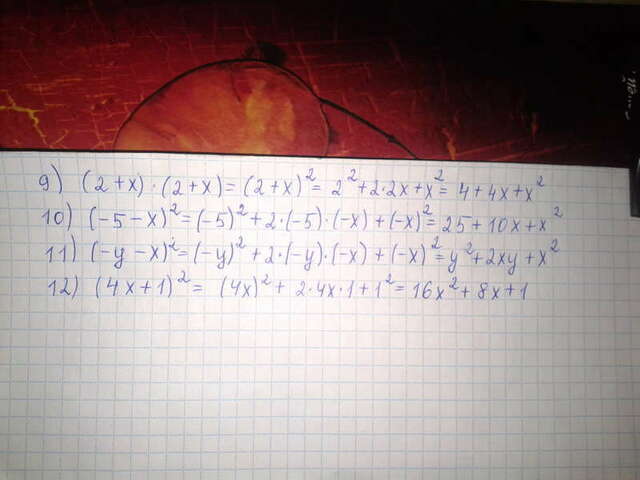 9) (2+x)·(2+x)=(2+x)²=2²+2·2x+x²=4+4x+x²
10) (-5-x)²=(-5)²+2·(-5)·(-x)+(-x)²=25+10x+x²
11) (-y-x)²=(-y)²+2·(-y)·(-x)+(-x)²=y²+2xy+x²
12) (4x+1)²= (4x)²+2·4x·1+1²=16x²+8x+1